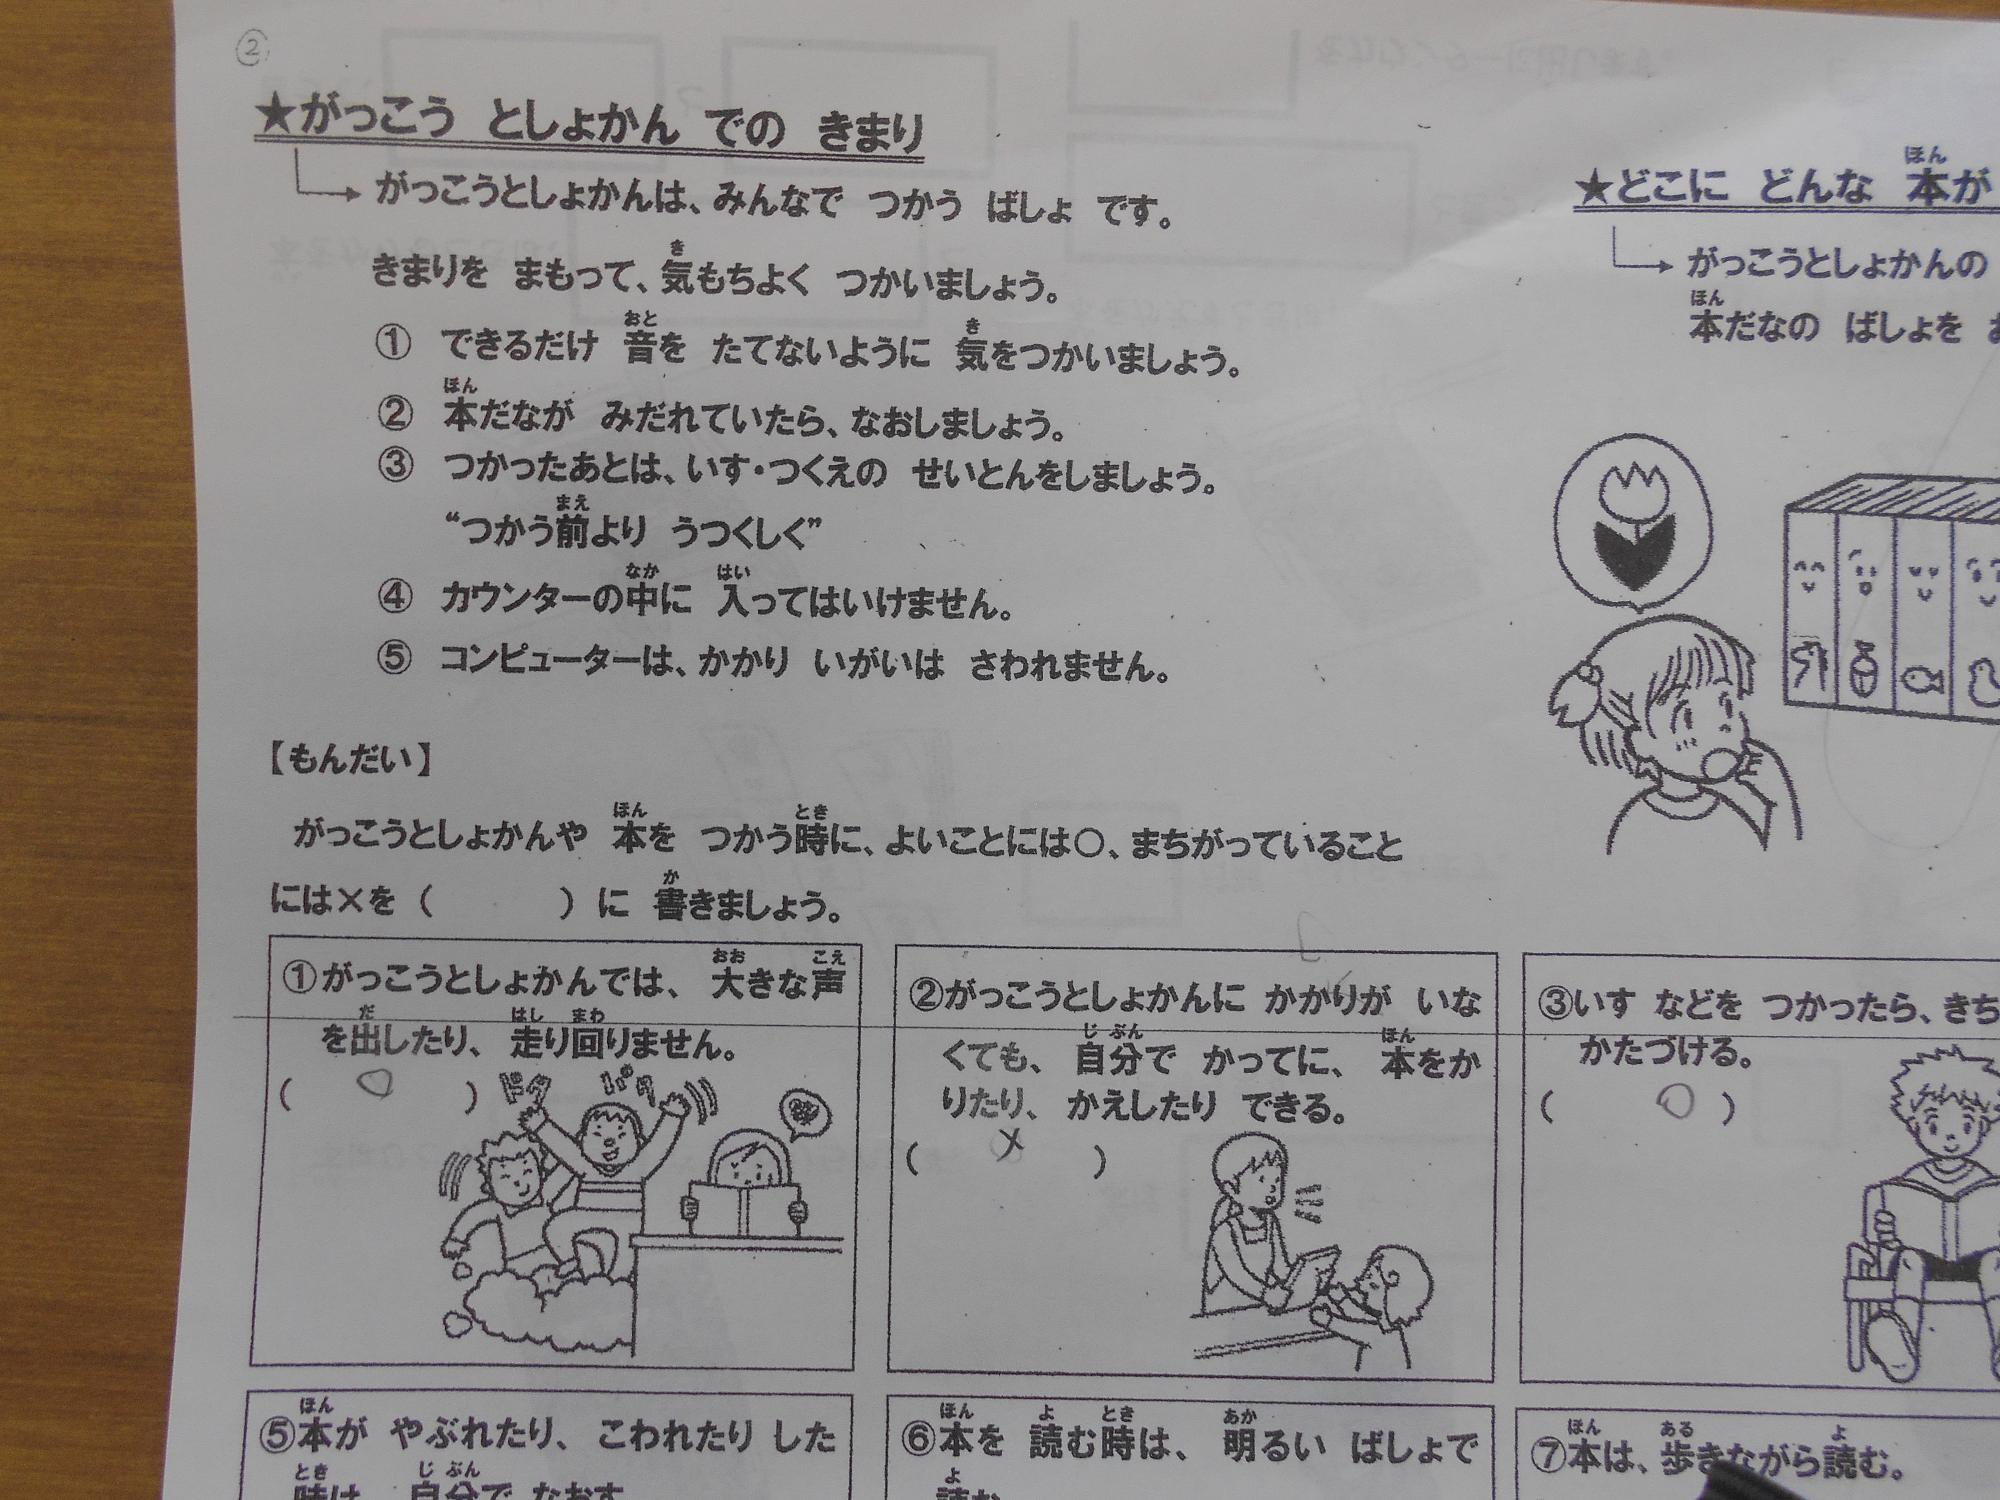 ②
★がっこう としょかん での きまり
がっこうとしょかんは、みんなで つかう ばしょ です。
きまりを まもって、気もちよく つかいましょう。
① できるだけ 音を たてないように 気をつかいましょう。
② 本だなが みだれていたら、なおしましょう。
③ つかったあとは、いす・つくえの せいとんをしましょう。
“つかう前より うつくしく”
④ カウンターの中に 入ってはいけません。
⑤ コンピューターは、かかり いがいは さわれません。
【もんだい】
がっこうとしょかんや 本を つかう時に、よいことには○、まちがっていること
には×を（ ）に 書きましょう。
①がっこうとしょかんでは、 大きな声
を出したり、 走り回りません。
（ ○ ）
ドタ バタ
②がっこうとしょかんに かかりが いな
くても、 自分で かってに、 本をか
りたり、 かえしたり できる。
（ × ）
③いす などを つかったら、きち
かたづける。
（ ○ ）
⑤本が やぶれたり、 こわれたり した
時は、 自分で なおす
⑥本を 読む時は、 明るい ばしょで
読む
⑦本は、歩きながら読む。
★どこに どんな 本が
がっこうとしょかんの
本だなの ばしょを お